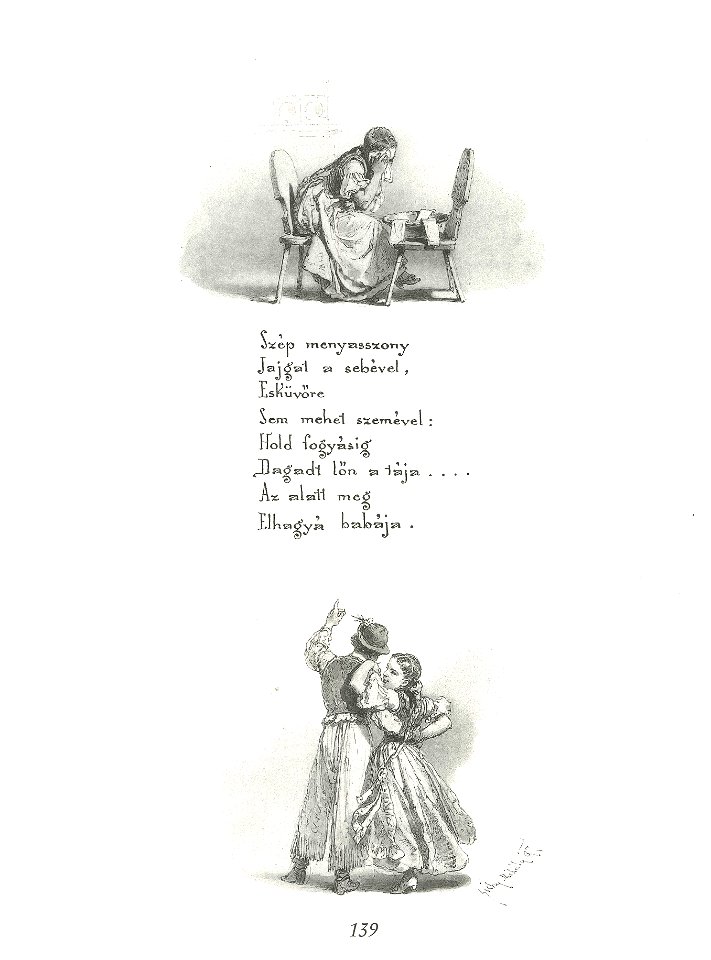 Szép menyasszony
Jajgat a sebével,
Esküvőre
Sem mehet szemével:
Hold fogyásig
Dagadt lőn a tája....
Az alatt meg
Elhagyá babája.
139